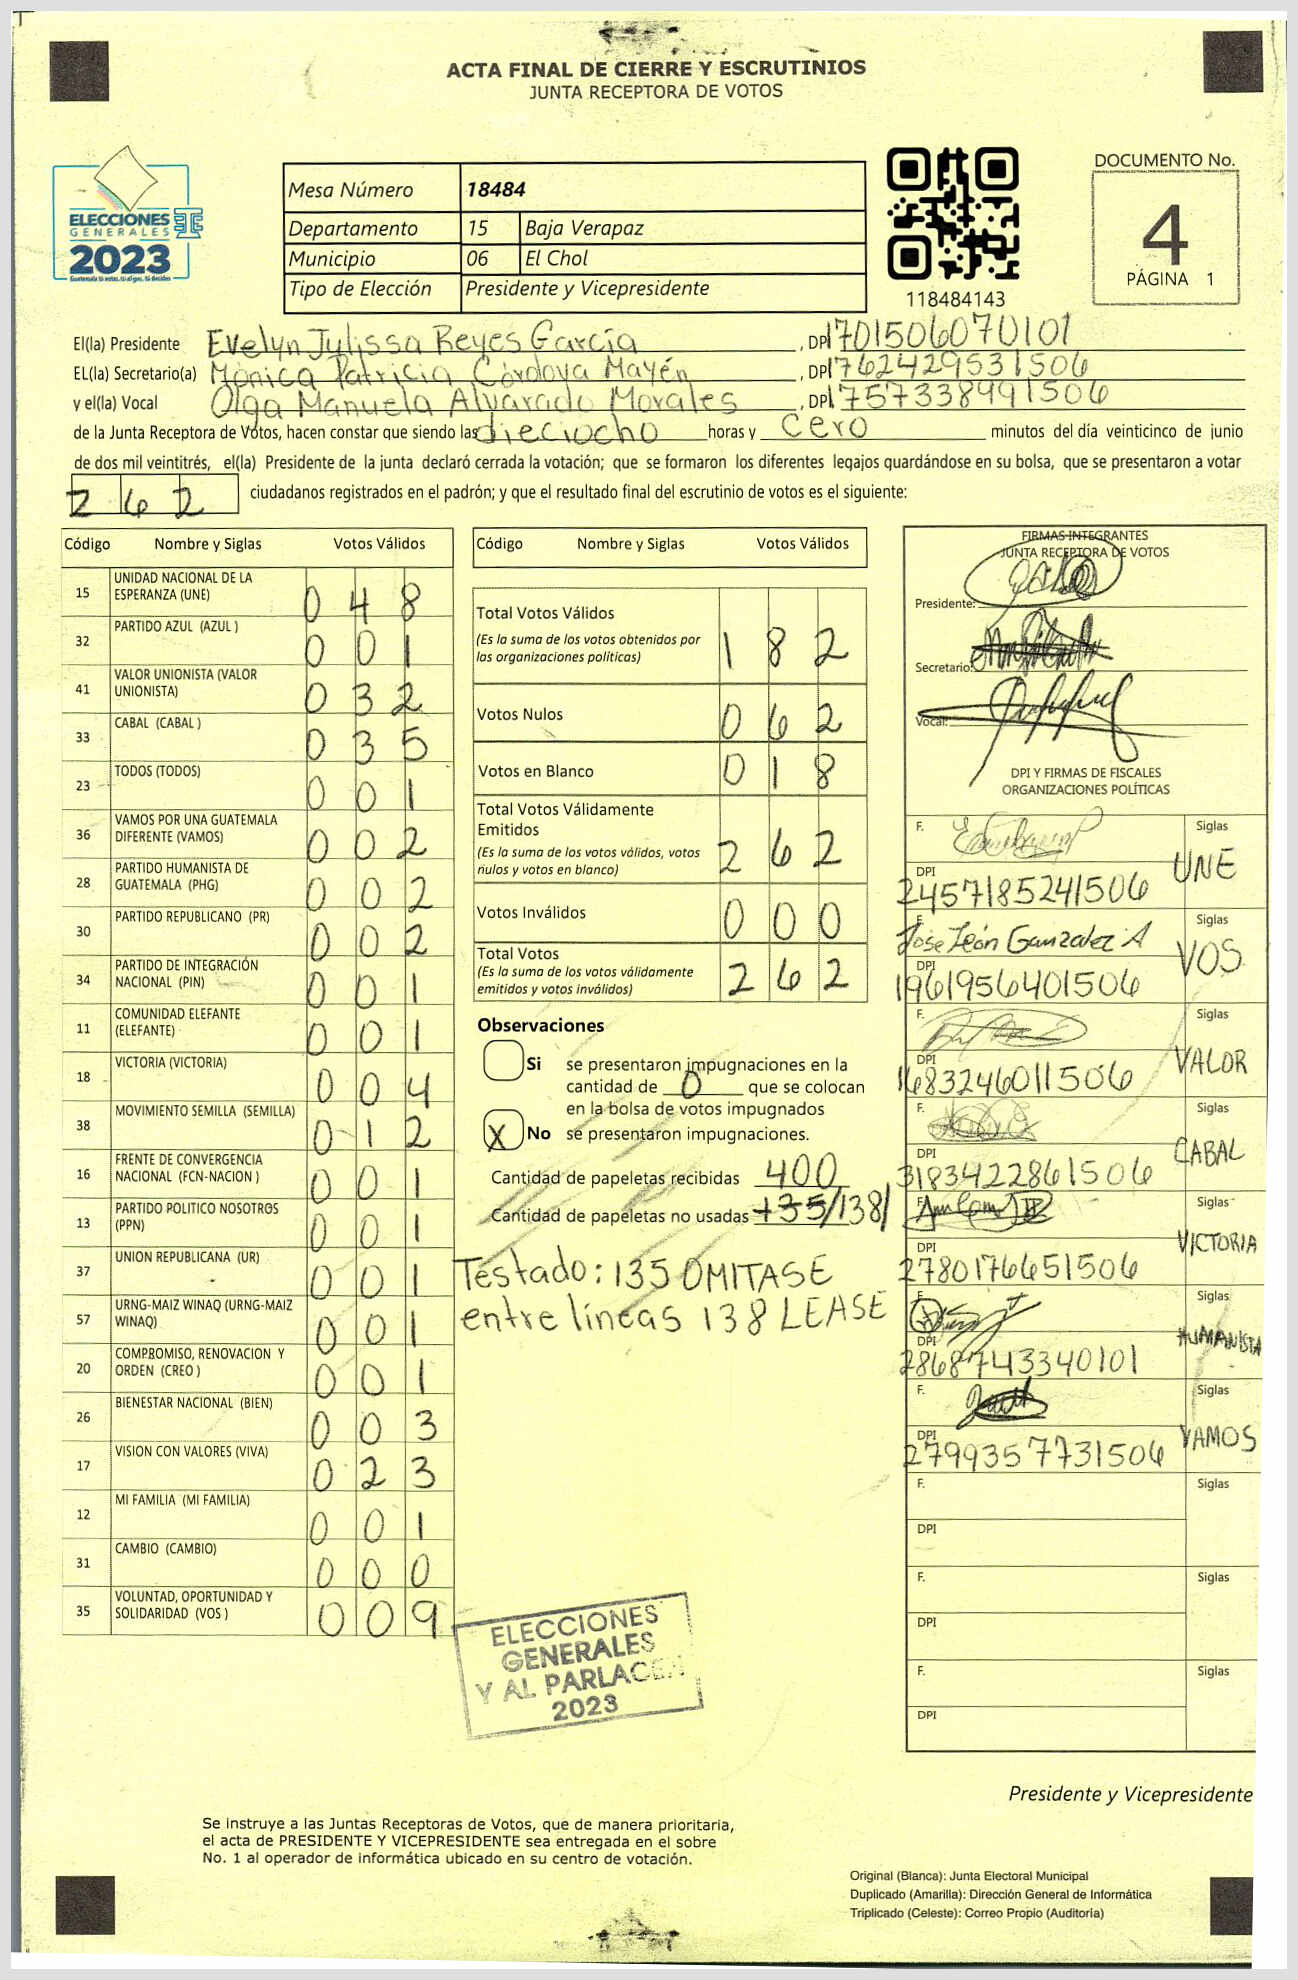 ACTA FINAL DE CIERRE Y ESCRUTINIOS
JUNTA RECEPTORA DE VOTOS
ELECCIONES
GENERALES
2023
Mesa Número 18484
Departamento 15 Baja Verapaz
Municipio 06 El Chol
Tipo de Elección Presidente y Vicepresidente
118484143
DOCUMENTO No.
4
PÁGINA 1
El(la) Presidente Evelyn Julissa Reyes García, DPI 701506070101
EL(la) Secretario(a) Mónica Patricia Córdova Mayén, DPI 762429531506
y el(la) Vocal Olga Manuela Alvarado Morales, DPI 757338991506
de la Junta Receptora de Votos, hacen constar que siendo las dieciocho horas y cero minutos del día veinticinco de junio
de dos mil veintitrés, el(la) Presidente de la junta declaró cerrada la votación; que se formaron los diferentes legajos guardándose en su bolsa, que se presentaron a votar
262 ciudadanos registrados en el padrón; y que el resultado final del escrutinio de votos es el siguiente:
Código Nombre y Siglas Votos Válidos
15 UNIDAD NACIONAL DE LA ESPERANZA (UNE) 048
32 PARTIDO AZUL (AZUL ) 001
41 VALOR UNIONISTA (VALOR UNIONISTA) 032
33 CABAL (CABAL ) 035
23 TODOS (TODOS) 001
36 VAMOS POR UNA GUATEMALA DIFERENTE (VAMOS) 002
28 PARTIDO HUMANISTA DE GUATEMALA (PHG) 002
30 PARTIDO REPUBLICANO (PR) 002
34 PARTIDO DE INTEGRACIÓN NACIONAL (PIN) 001
11 COMUNIDAD ELEFANTE (ELEFANTE) 001
18 VICTORIA (VICTORIA) 004
38 MOVIMIENTO SEMILLA (SEMILLA) 012
16 FRENTE DE CONVERGENCIA NACIONAL (FCN-NACION ) 001
13 PARTIDO POLITICO NOSOTROS (PPN) 001
37 UNION REPUBLICANA (UR) 001
57 URNG-MAIZ WINAQ (URNG-MAIZ WINAQ) 001
20 COMPROMISO, RENOVACION Y ORDEN (CREO ) 001
26 BIENESTAR NACIONAL (BIEN) 003
17 VISION CON VALORES (VIVA) 023
12 MI FAMILIA (MI FAMILIA) 001
31 CAMBIO (CAMBIO) 000
35 VOLUNTAD, OPORTUNIDAD Y SOLIDARIDAD (VOS ) 009
Código Nombre y Siglas Votos Válidos
Total Votos Válidos 182
(Es la suma de los votos obtenidos por
las organizaciones politicas)
Votos Nulos 062
Votos en Blanco 018
Total Votos Válidamente
Emitidos 262
(Es la suma de los votos válidos, votos
nulos y votos en blanco)
Votos Inválidos 000
Total Votos 262
(Es la suma de los votos válidamente
emitidos y votos inválidos)
Observaciones
Si se presentaron impugnaciones en la
cantidad de 0 que se colocan
en la bolsa de votos impugnados
X No se presentaron impugnaciones.
Cantidad de papeletas recibidas 400
Cantidad de papeletas no usadas 135/138/
Testado: 135 OMITASE
entre líneas 138 LEASE
ELECCIONES
GENERALES
Y AL PARLACEN
2023
FIRMAS INTEGRANTES
JUNTA RECEPTORA DE VOTOS
Presidente:
Secretario:
Vocal:
DPI Y FIRMAS DE FISCALES
ORGANIZACIONES POLÍTICAS
F. Siglas UNE
DPI 2457185241506
F. Jose León Gonzalez A Siglas VOS
DPI 1961956401506
F. Siglas VALOR
DPI 1683246011506
F. Siglas CABAL
DPI 3183422861506
F. Siglas VICTORIA
DPI 2780176651506
F. Siglas HUMANISTA
DPI 2868743340101
F. Siglas VAMOS
DPI 2799357731506
F. Siglas
DPI
F. Siglas
DPI
F. Siglas
DPI
Presidente y Vicepresidente
Se instruye a las Juntas Receptoras de Votos, que de manera prioritaria,
el acta de PRESIDENTE Y VICEPRESIDENTE sea entregada en el sobre
No. 1 al operador de informática ubicado en su centro de votación.
Original (Blanca): Junta Electoral Municipal
Duplicado (Amarilla): Dirección General de Informática
Triplicado (Celeste): Correo Propio (Auditoría)